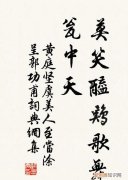 莫笑醯鷄歌舞
瓮中天
黄庭坚虞美人至當涂
呈郭功甫詞典網集